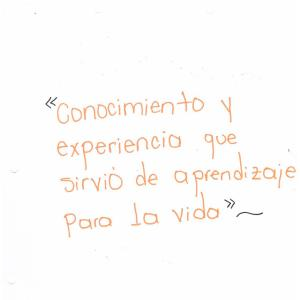 «Conocimiento y
experiencia que
sirvió de aprendizaje
para la vida»~